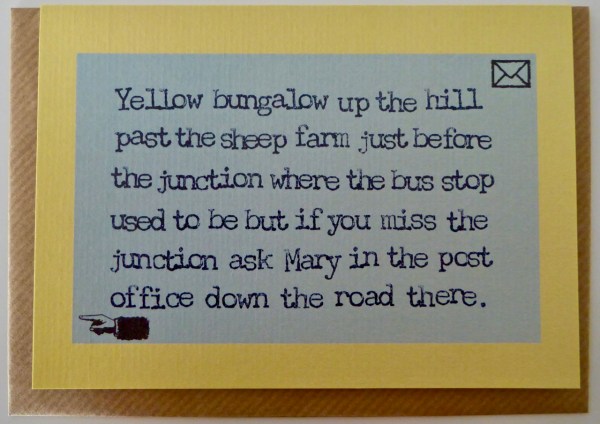 Yellow bungalow up the hill
past the sheep farm just before
the junction where the bus stop
used to be but if you miss the
junction ask Mary in the post
office down the road there.